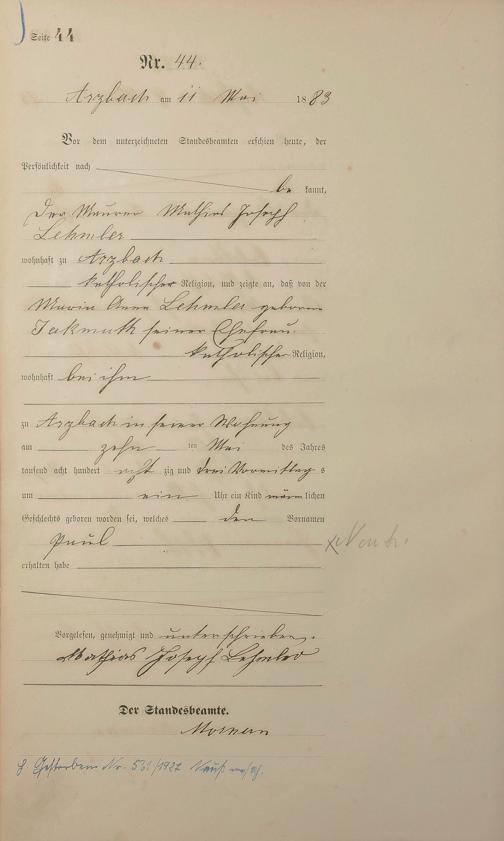 Seite 44
Nr. 44.
Arzbach am 11 Mai 1883
Vor dem unterzeichneten Standesbeamten erschien heute, der
Persönlichkeit nach
be kannt,
der Maurer Mathias Joseph
Lehmler
wohnhaft zu Arzbach
katholischer Religion, und zeigte an, daß von der
Maria Anna Lehmler geborene
Jakmuth seiner Ehefrau
katholischer Religion,
wohnhaft bei ihm
zu Arzbach in seiner Wohnung
am zehn ten Mai des Jahres
tausend acht hundert acht zig und drei Vormittag s
um ein Uhr ein Kind männ lichen
Geschlechts geboren worden sei, welches den Vornamen
Paul
erhalten habe
Vorgelesen, genehmigt und unterschrieben.
Mathias Joseph Lehmler
Der Standesbeamte.
Gestorben Nr. 531/1927